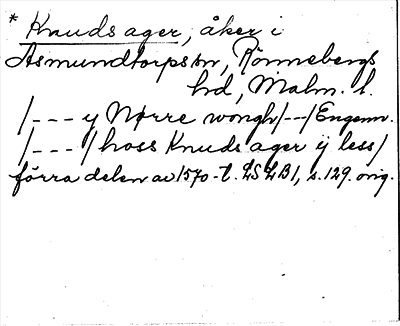 * Knuds ager, åker i
Asmundtorps sn, Rönnebergs
hd, Malm. l.
/--- y Nørre wongh/--/Engenn.
/---/hoss Knuds ager ÿ less/
förra delen av 1570-t. LSLB1, s.129. orig.